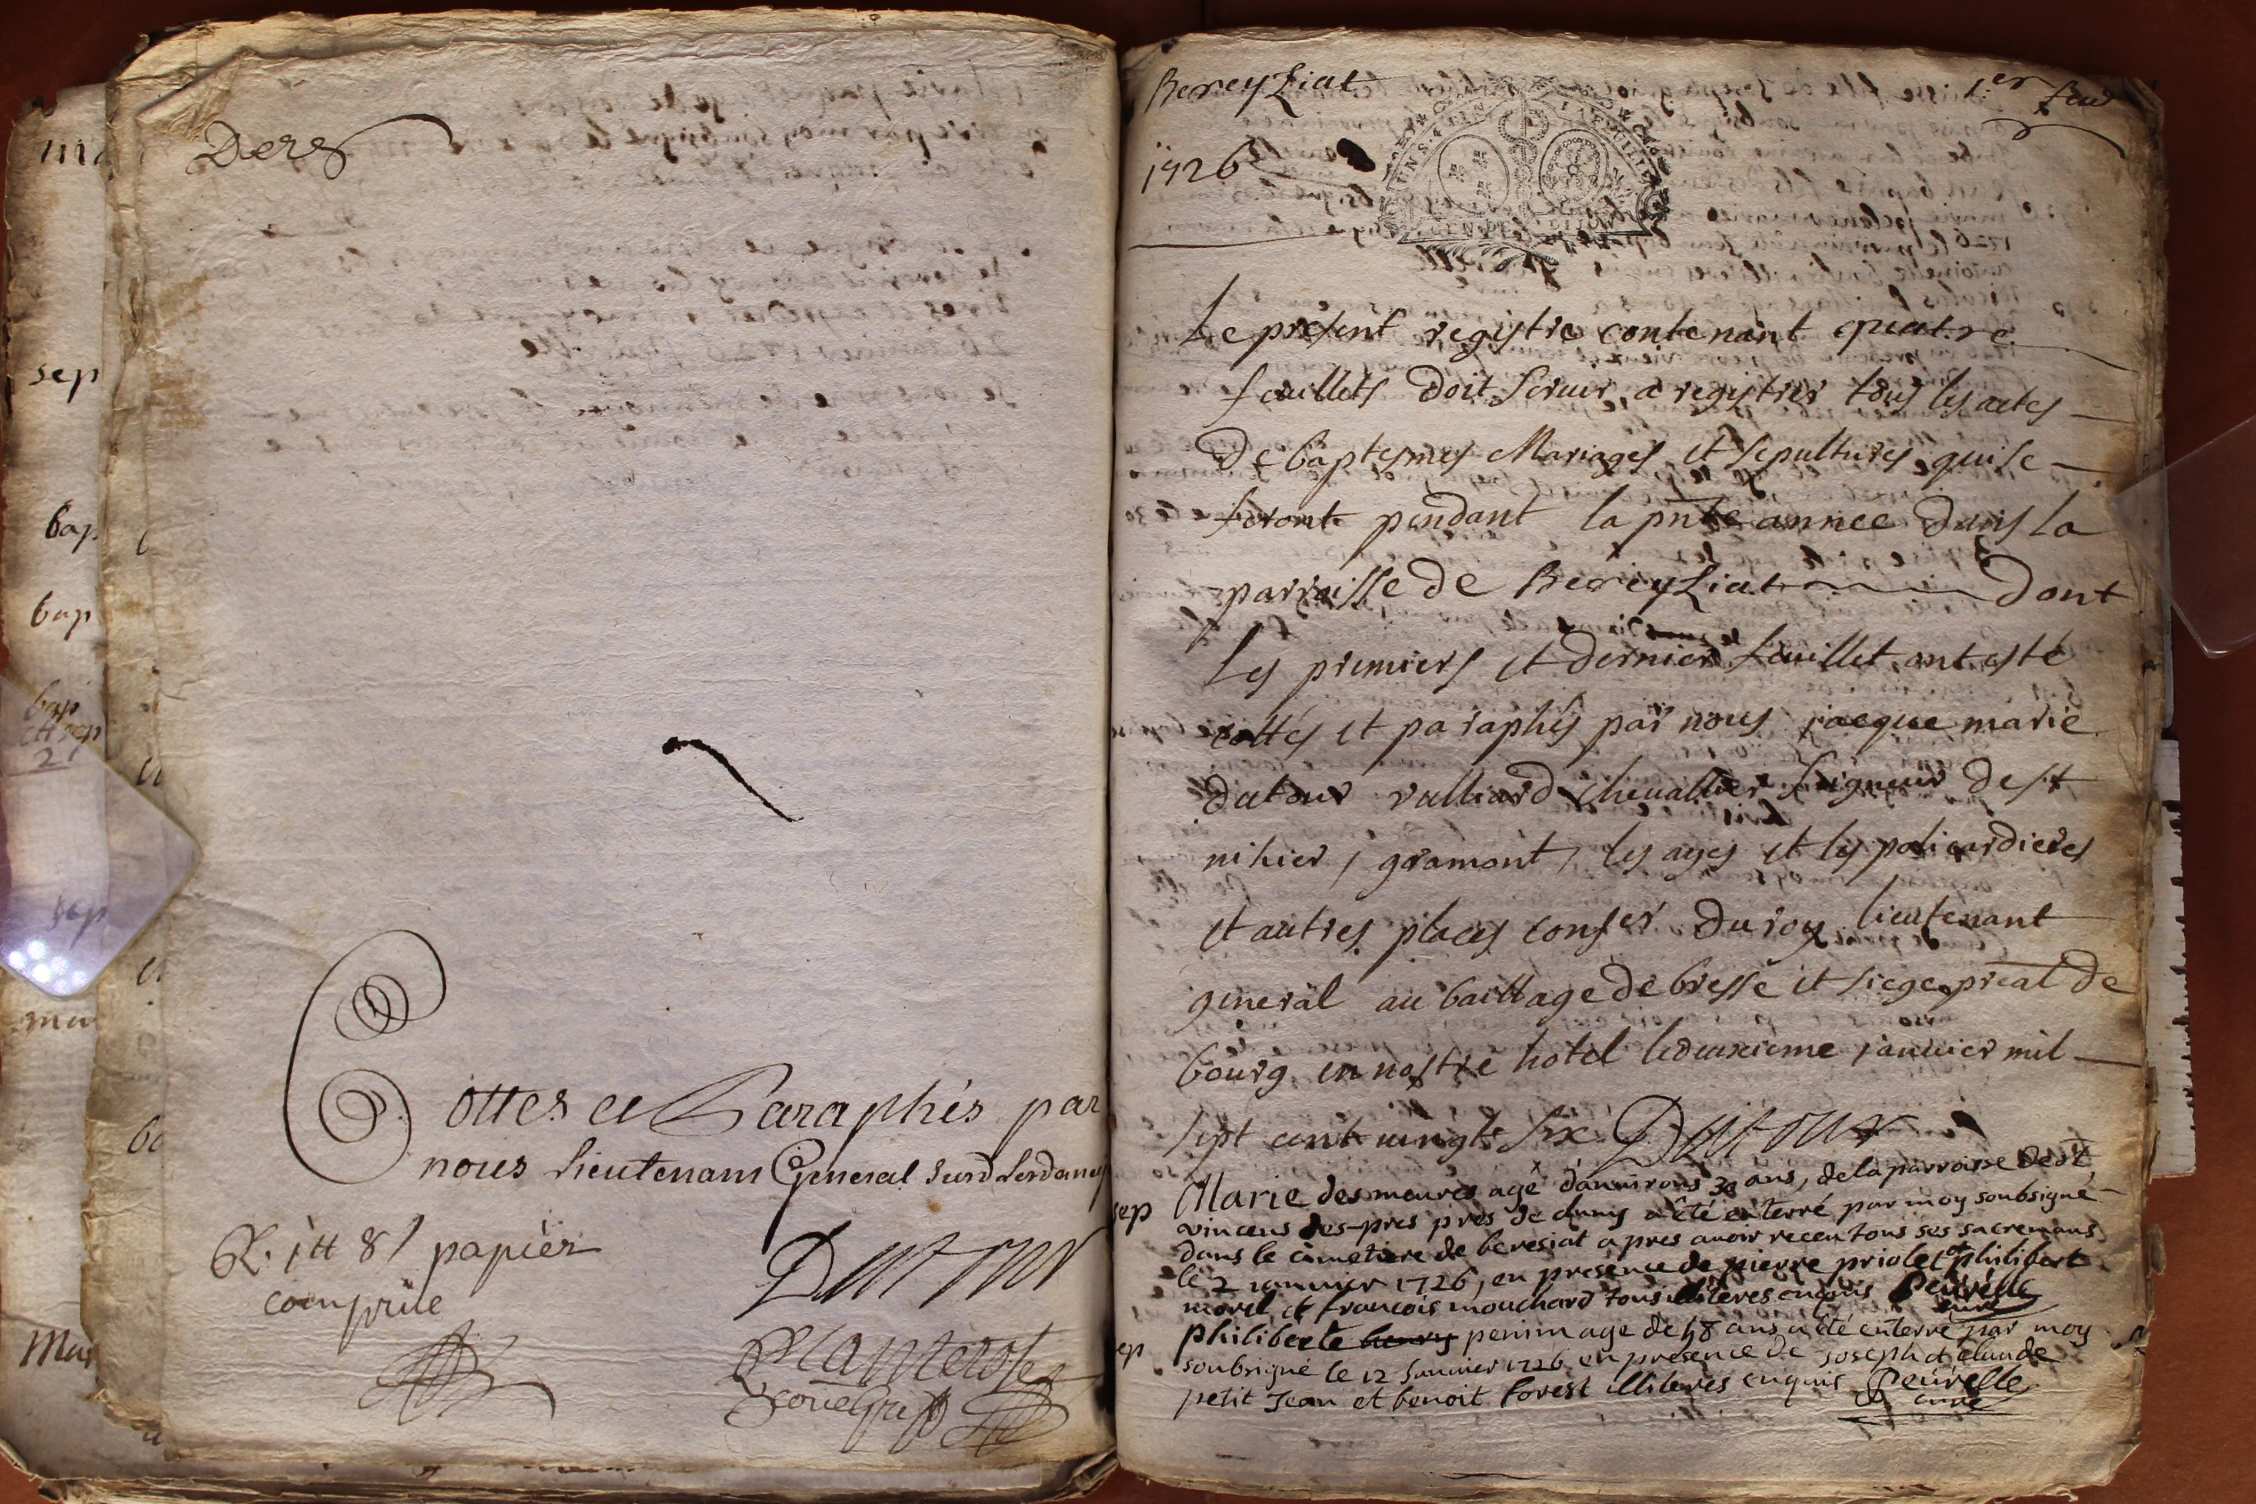 Ders
Cottes et Paraphés par
nous Lieutenant General
R. 1tt 8s papier
comprise
Dutour
BereyZiat
1er feuil
1726
Le présent registre contenant quatre
feuillets doit seruir a registrer tous les actes
De baptesmes Mariages et sepultures qui se
feront pendant la pnte annee dans la
parroisse de BereyZiat dont
Les premiers et dernier feuillet ont esté
cottés et paraphés par nous jacque marie
dutour vulliard cheuallier seigneur de st
nihier, gramont, les ages et les policardieres
et autres places conser du roy lieutenant
general au baillage de bresse et siege preal de
bourg en nostre hotel le deuxieme januier mil
sept cent uingt six Dutour
sep
Marie desmeures agé d'anuirons 30 ans, de la parroisse de st
vincens des-pres pres de cluny a été enterré par moy soubsigné
dans le cimetiere de beresiat apres auoir receu tous ses sacremans
le 2 ianuier 1726, en presence de pierre priolet et philibert
morel et francois mouchard tous illiteres enquis Peurelle
curé
sep
philiberte henry penin age de 48 ans a été enterré par moy
soubsigné le 12 Januier 1726 en presence de joseph et claude
petit Jean et benoit forest illiteres enquis Peurelle
curé
sep
bap
bap
bap
sep
Mar